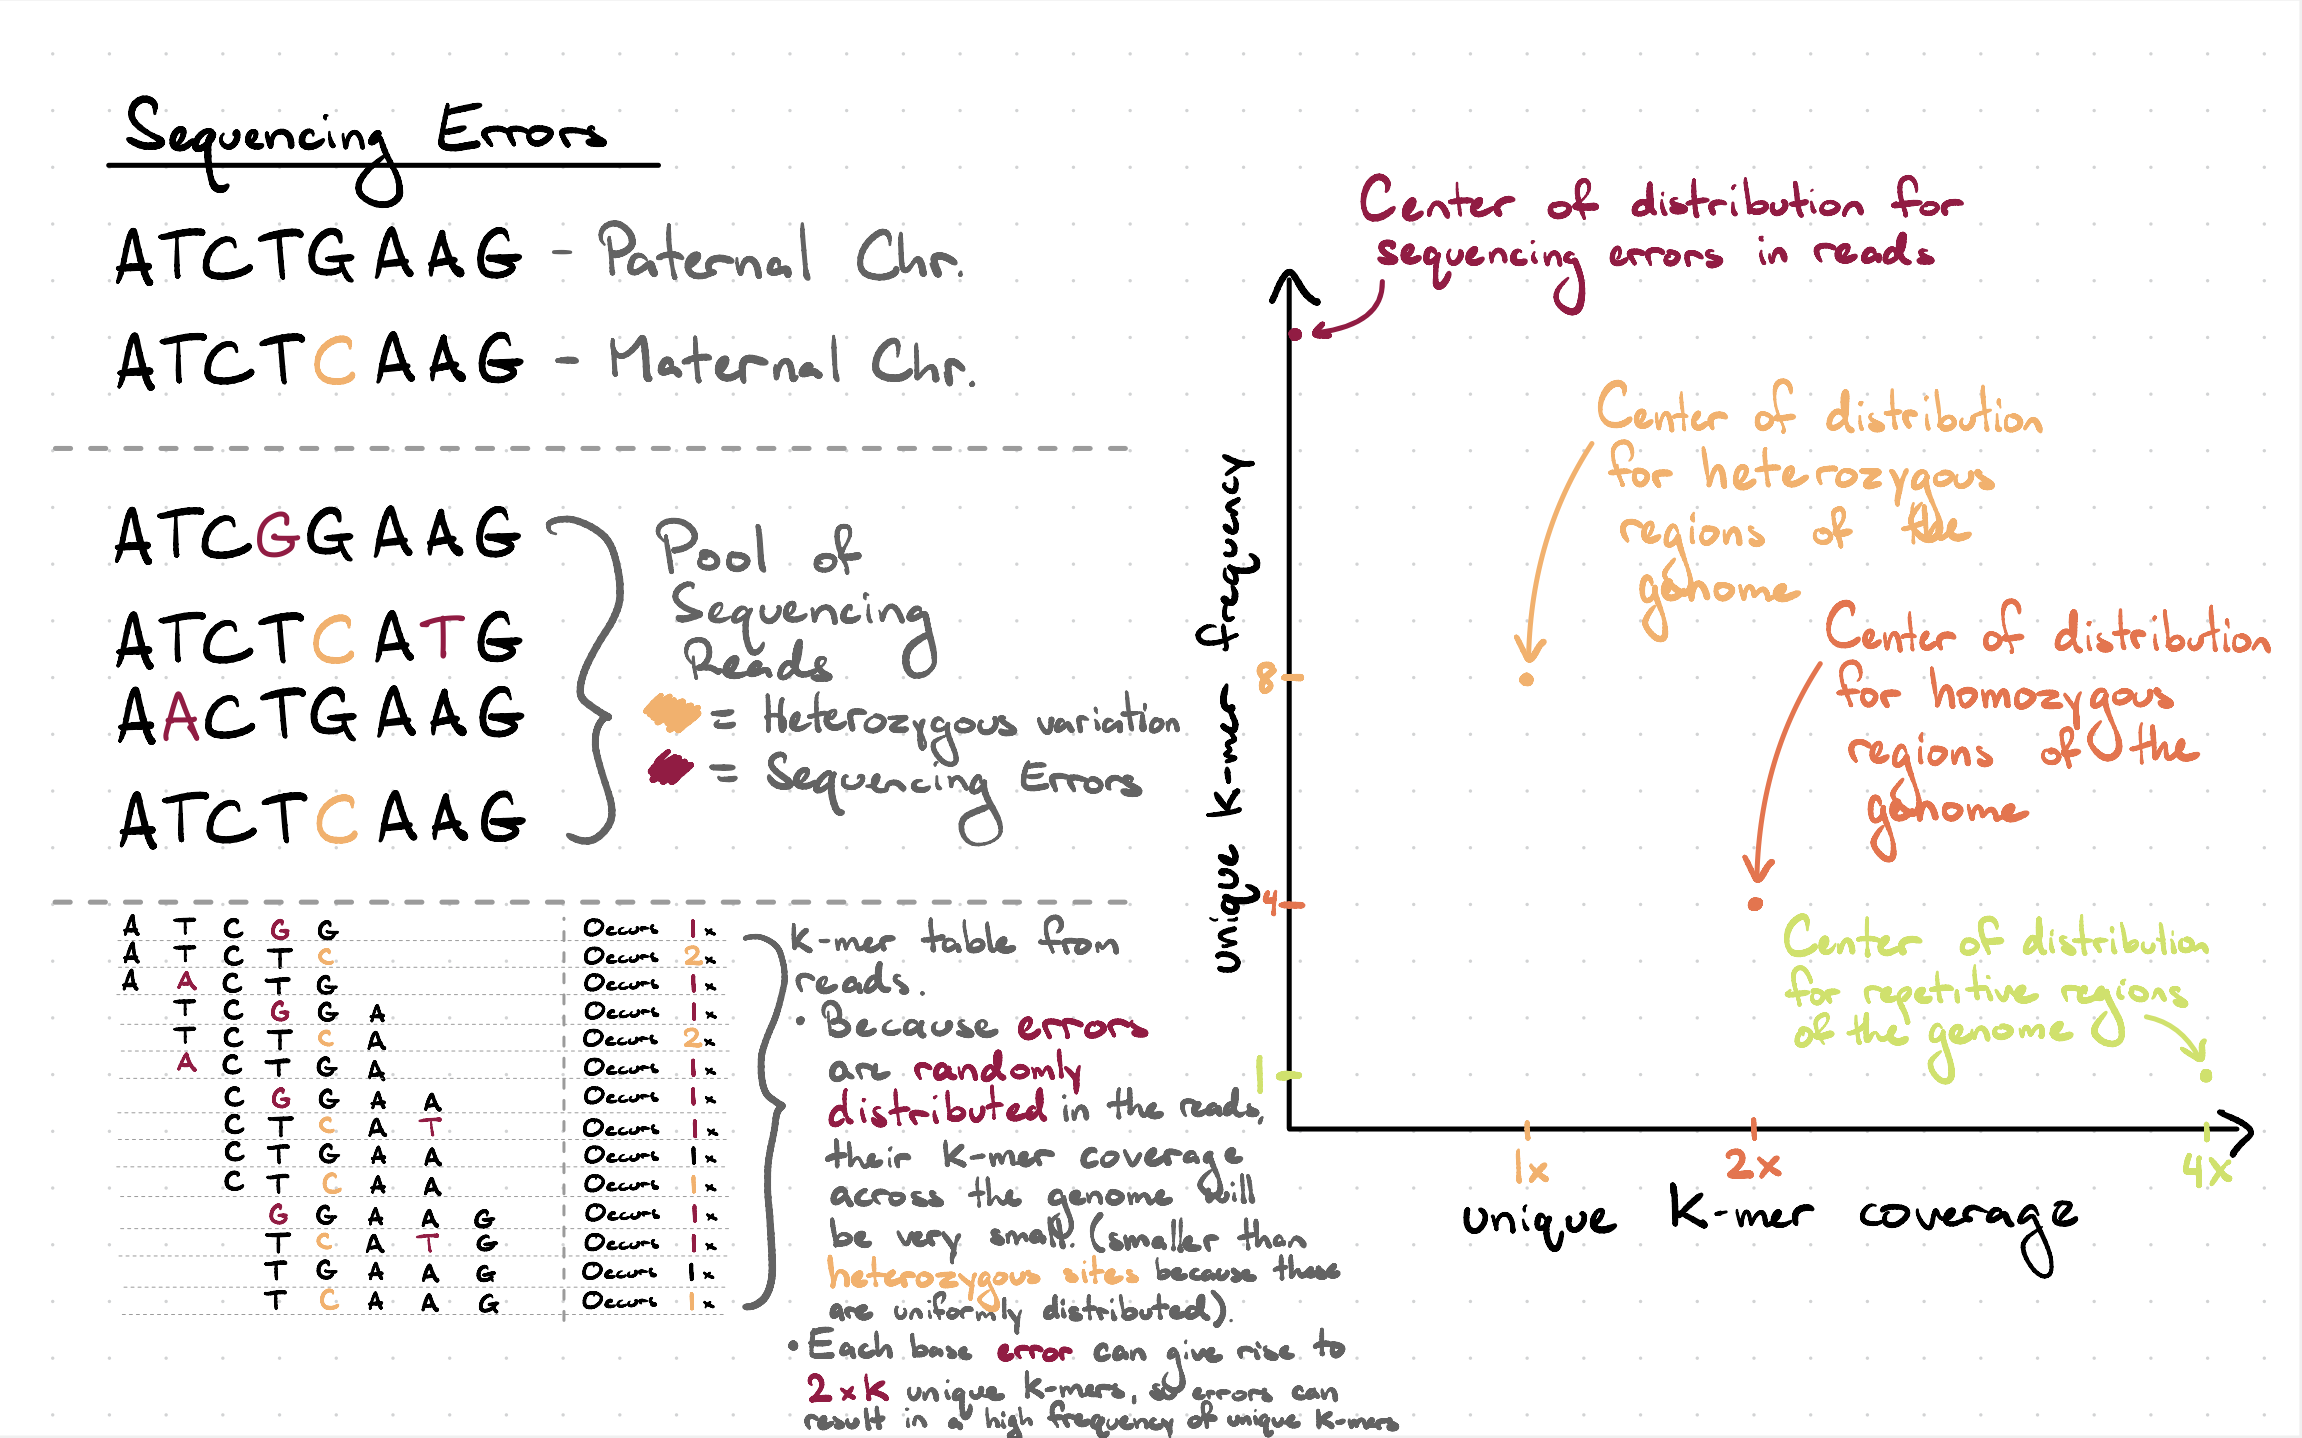 Sequencing Errors
ATCTGAAG - Paternal Chr.
ATCTCAAG - Maternal Chr.
ATCGGAAG
ATCTCATG
AACTGAAG
ATCTCAAG
Pool of
Sequencing
Reads
= Heterozygous variation
= Sequencing Errors
A T C G G Occurs 1x
A T C T C Occurs 2x
A A C T G Occurs 1x
T C G G A Occurs 1x
T C T C A Occurs 2x
A C T G A Occurs 1x
C G G A A Occurs 1x
C T C A T Occurs 1x
C T G A A Occurs 1x
C T C A A Occurs 1x
G G A A G Occurs 1x
T C A T G Occurs 1x
T G A A G Occurs 1x
T C A A G Occurs 1x
K-mer table from
reads.
• Because errors
are randomly
distributed in the reads,
their K-mer coverage
across the genome will
be very small. (smaller than
heterozygous sites because these
are uniformly distributed).
• Each base error can give rise to
2xK unique K-mers, so errors can
result in a high frequency of unique K-mers
Center of distribution for
sequencing errors in reads
Center of distribution
for heterozygous
regions of the
genome
Center of distribution
for homozygous
regions of the
genome
Center of distribution
for repetitive regions
of the genome
unique K-mer frequency
8
4
1
1x
2x
4x
unique K-mer coverage